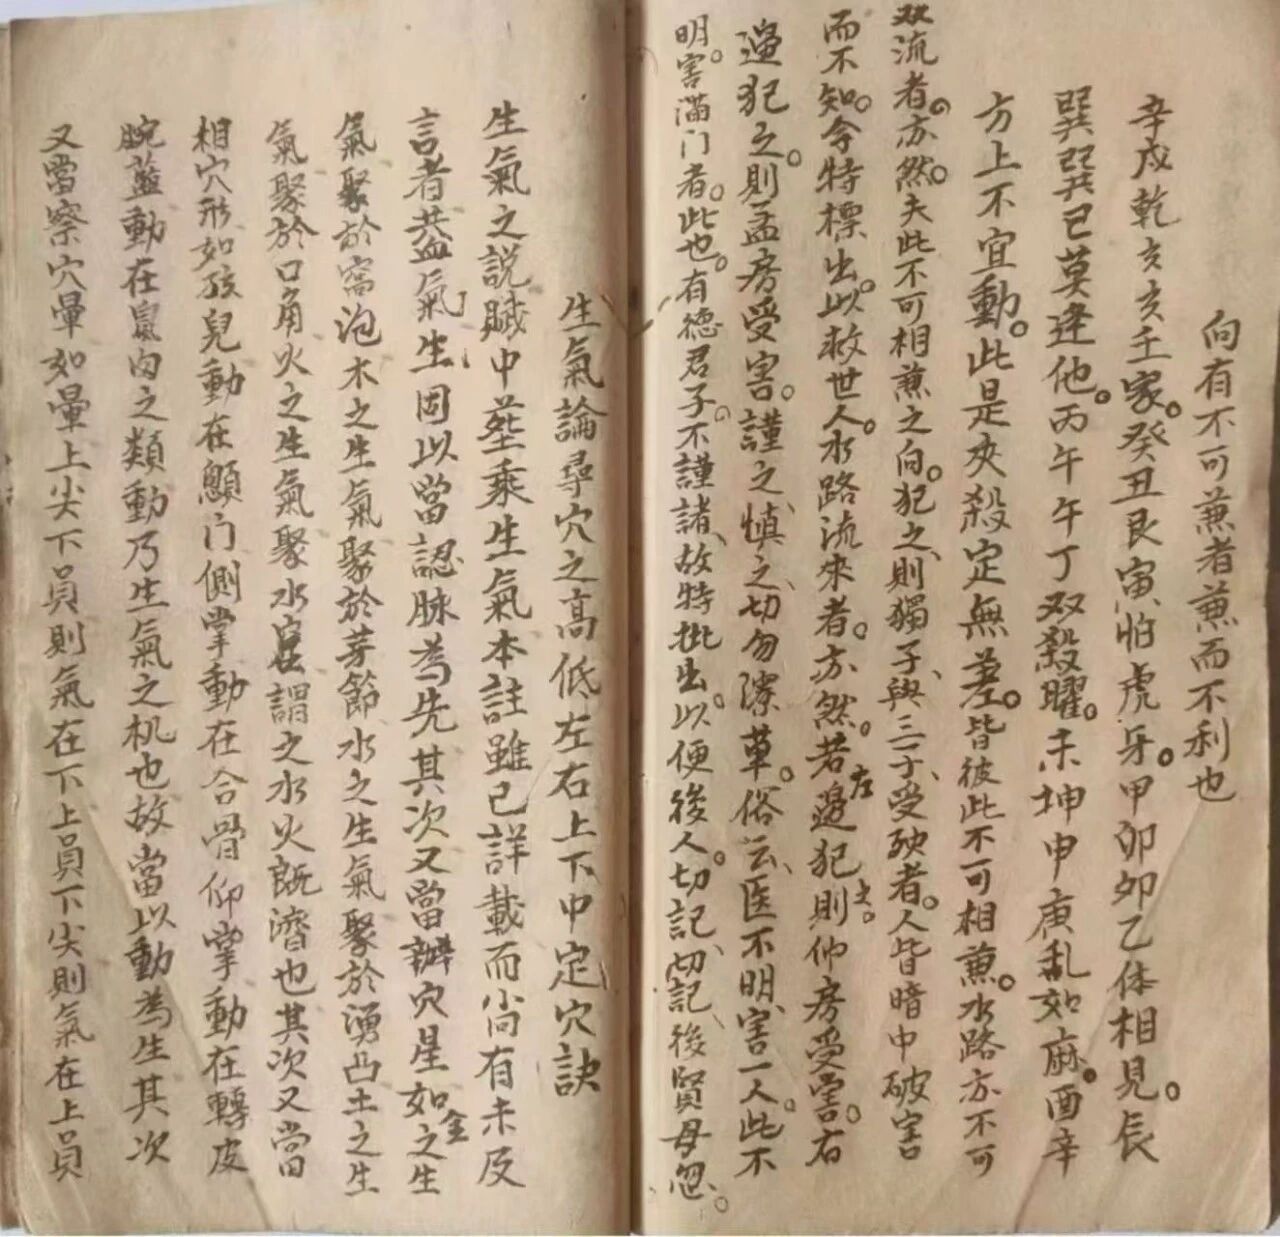 向有不可兼者兼而不利也
辛戍乾亥亥壬家。癸丑艮寅怕虎牙。甲卯卯乙体相見。辰
巽巽巳莫逢他。丙午午丁双殺曜。未坤申庚乱如麻。酉辛
方上不宜動。此是夾殺定無差。皆彼此不可相兼。水路亦不可
双流者。亦然。夫此不可相兼之向。犯之、則獨子、與三子、受殃者。人皆暗中破害
而不知。今特標出。以救世人。水路流來者。亦然。若左邉犯之。則仲房受害。右
邉犯之。則孟房受害。謹之、慎之、切勿潦草。俗云、医不明、害一人。此不
明。害滿门者。此也。有德君子。不謹諸、故特批出。以便後人。切記、切記、後賢毋忽。
生氣論尋穴之高低左右上下中定穴訣
生氣之説賦中塟乘生氣本註雖已詳載而尚有未及
言者共血氣生固以當認脉為先其次又當辦穴星如金之生
氣聚於窩泡木之生氣聚於芽節水之生氣聚於湧凸土之生
氣聚於口角火之生氣聚水窟謂之水火既濟也其次又當
相穴形如孩兒動在顖门側掌動在合骨仰掌動在轉皮
腕藍動在鼠肉之類動乃生氣之机也故當以動為生其次
又當察穴暈如暈上尖下員則氣在下上員下尖則氣在上員